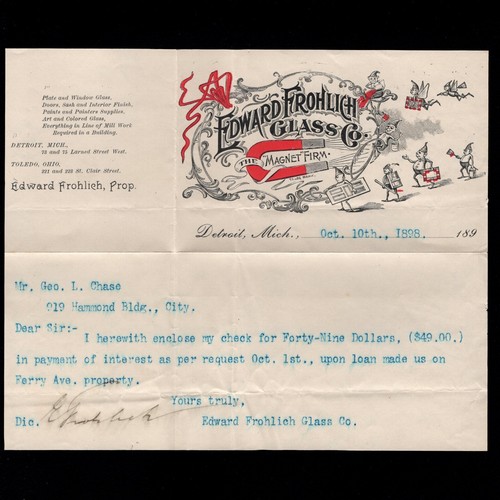 Plate and Window Glass,
Doors, Sash and Interior Finish,
Paints and Painters Supplies.
Art and Colored Glass,
Everything in Line of Mill Work
Required in a Building.
DETROIT, MICH.,
23 and 25 Larned Street West.
TOLEDO, OHIO,
221 and 223 St. Clair Street.
Edward Frohlich, Prop.
EDWARD FROHLICH
GLASS CO.
THE "MAGNET FIRM"
Detroit, Mich., Oct. 10th., 1898. 189
Mr. Geo. L. Chase
919 Hammond Bldg., City.
Dear Sir:-
I herewith enclose my check for Forty-Nine Dollars, ($49.00.)
in payment of interest as per request Oct. 1st., upon loan made us on
Ferry Ave. property.
Yours truly,
Dic. E Frohlich Edward Frohlich Glass Co.